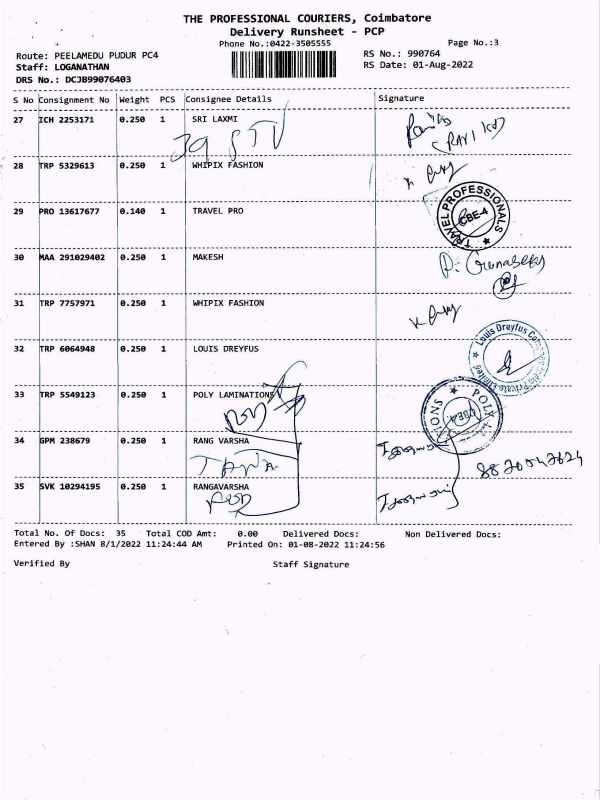 THE PROFESSIONAL COURIERS, Coimbatore
Delivery Runsheet - PCP
Phone No.:0422-3505555
Page No.:3
Route: PEELAMEDU PUDUR PC4
RS No.: 990764
Staff: LOGANATHAN
RS Date: 01-Aug-2022
DRS No.: DCJB99076403
S No Consignment No Weight PCS Consignee Details Signature
27 ICH 2253171 0.250 1 SRI LAXMI
(RAVI KU)
28 TRP 5329613 0.250 1 WHIPIX FASHION
29 PRO 13617677 0.140 1 TRAVEL PRO
TRAVEL PROFESSIONALS
CBE-4
30 MAA 291029402 0.250 1 MAKESH
P. Gunasekar
31 TRP 7757971 0.250 1 WHIPIX FASHION
32 TRP 6064948 0.250 1 LOUIS DREYFUS
Louis Dreyfus Company India Private Limited
33 TRP 5549123 0.250 1 POLY LAMINATIONS
34 GPM 238679 0.250 1 RANG VARSHA
35 SVK 10294195 0.250 1 RANGAVARSHA
Total No. Of Docs: 35 Total COD Amt: 0.00 Delivered Docs: Non Delivered Docs:
Entered By :SHAN 8/1/2022 11:24:44 AM Printed On: 01-08-2022 11:24:56
Verified By Staff Signature